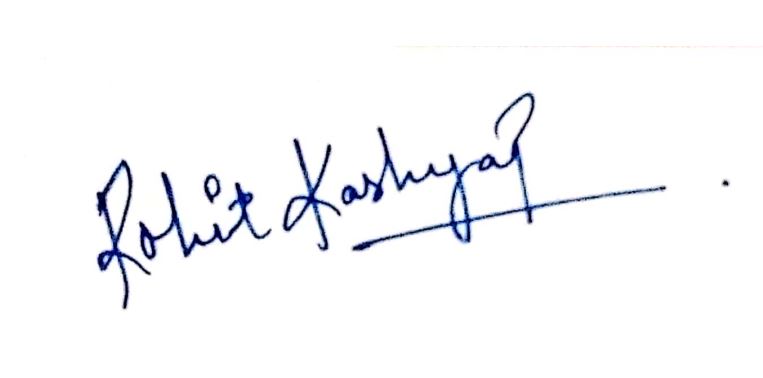 Rohit Kashyap